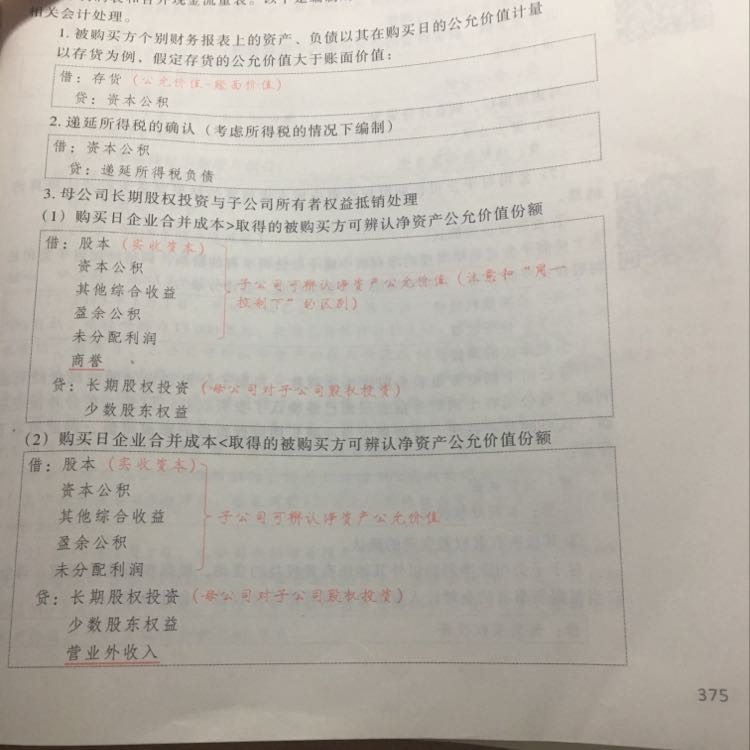 相关会计处理。
1. 被购买方个别财务报表上的资产、负债以其在购买日的公允价值计量
以存货为例，假定存货的公允价值大于账面价值：
借：存货（公允价值-账面价值）
贷：资本公积
2. 递延所得税的确认（考虑所得税的情况下编制）
借：资本公积
贷：递延所得税负债
3. 母公司长期股权投资与子公司所有者权益抵销处理
（1）购买日企业合并成本>取得的被购买方可辨认净资产公允价值份额
借：股本（实收资本）
资本公积
其他综合收益
盈余公积
未分配利润
子公司可辨认净资产公允价值（注意和“同一
控制下”的区别）
商誉
贷：长期股权投资（母公司对子公司股权投资）
少数股东权益
（2）购买日企业合并成本<取得的被购买方可辨认净资产公允价值份额
借：股本（实收资本）
资本公积
其他综合收益
盈余公积
未分配利润
子公司可辨认净资产公允价值
贷：长期股权投资（母公司对子公司股权投资）
少数股东权益
营业外收入
375